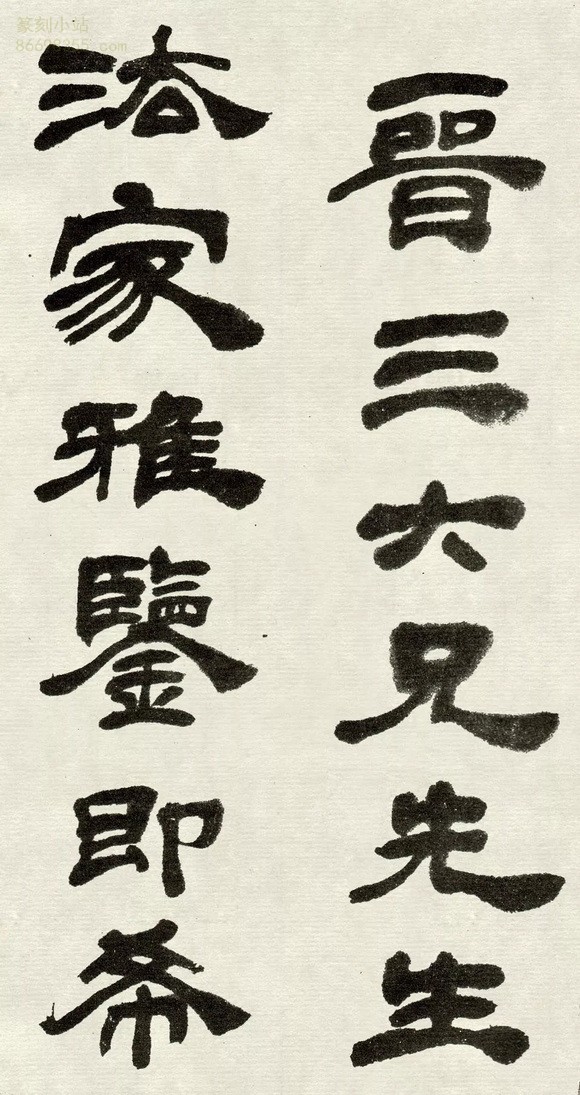 篆刻小站
晉三六兄先生
法家雅鑒即希